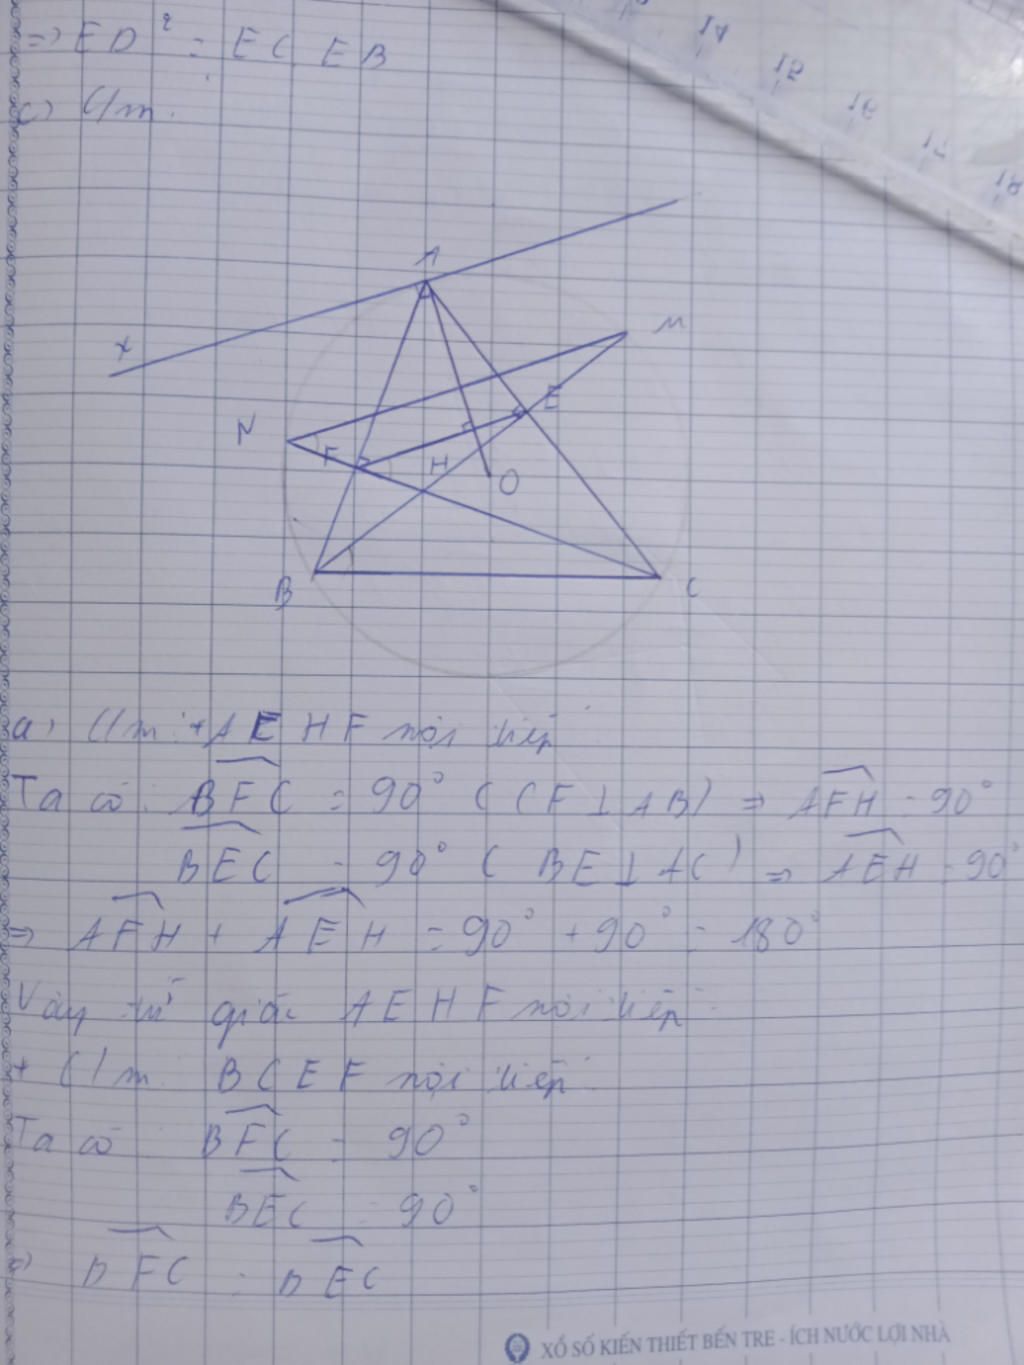 => ED² = EC. EB
c) C/m.
14
15
16
17
18
A
x
M
N
E
F
H
O
B
C
a) C/m: + AEHF nội tiếp
Ta có: BFC = 90° (CF ⊥ AB) => AFH = 90°
BEC = 90° ( BE ⊥ AC) => AEH = 90°
=> AFH + AEH = 90° + 90° = 180°
Vậy tứ giác AEHF nội tiếp
+ C/m BCEF nội tiếp
Ta có BFC = 90°
BEC = 90°
=> BFC = BEC
XỔ SỐ KIẾN THIẾT BẾN TRE - ÍCH NƯỚC LỢI NHÀ